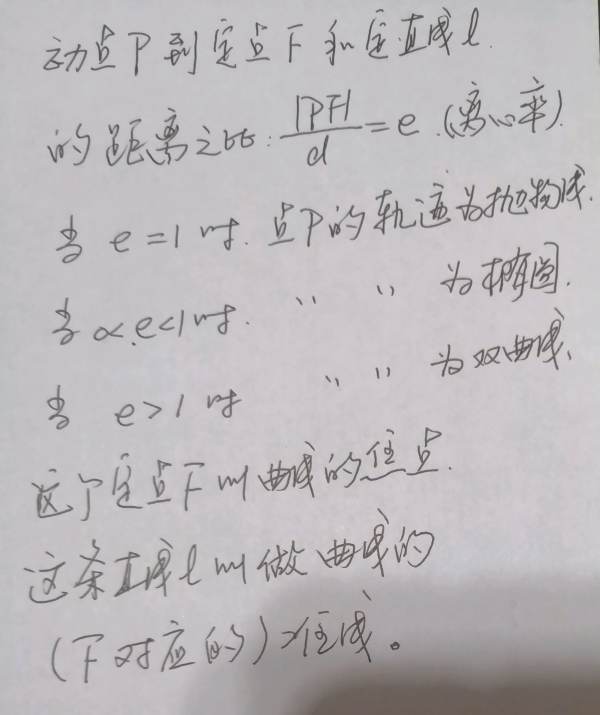 动点P到定点F和定直线l
的距离之比:|PF|/d=e.(离心率).
当 e=1时.点P的轨迹为抛物线.
当 0<e<1时. 〃 〃 为椭圆.
当 e>1时 〃 〃 为双曲线、
这个定点F叫曲线的焦点.
这条直线l叫做曲线的
(F对应的)准线。